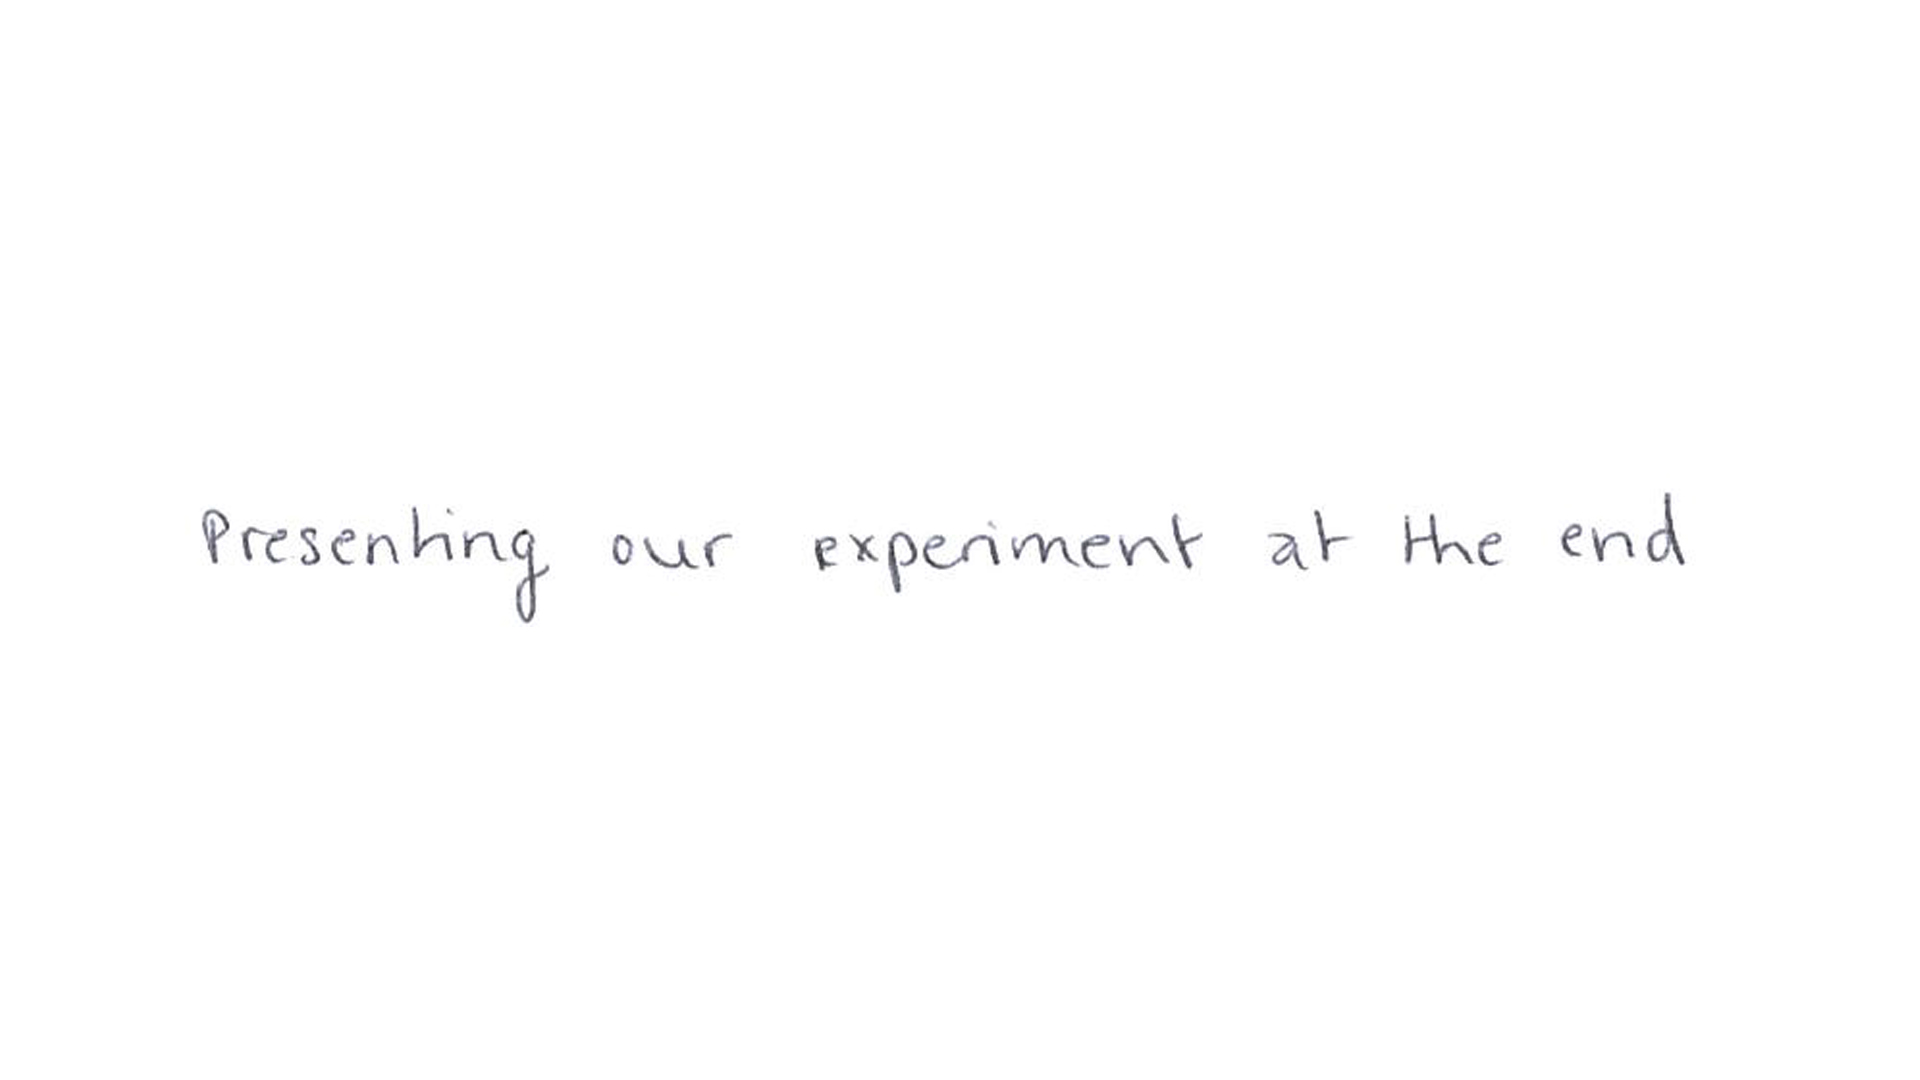 Presenting our experiment at the end